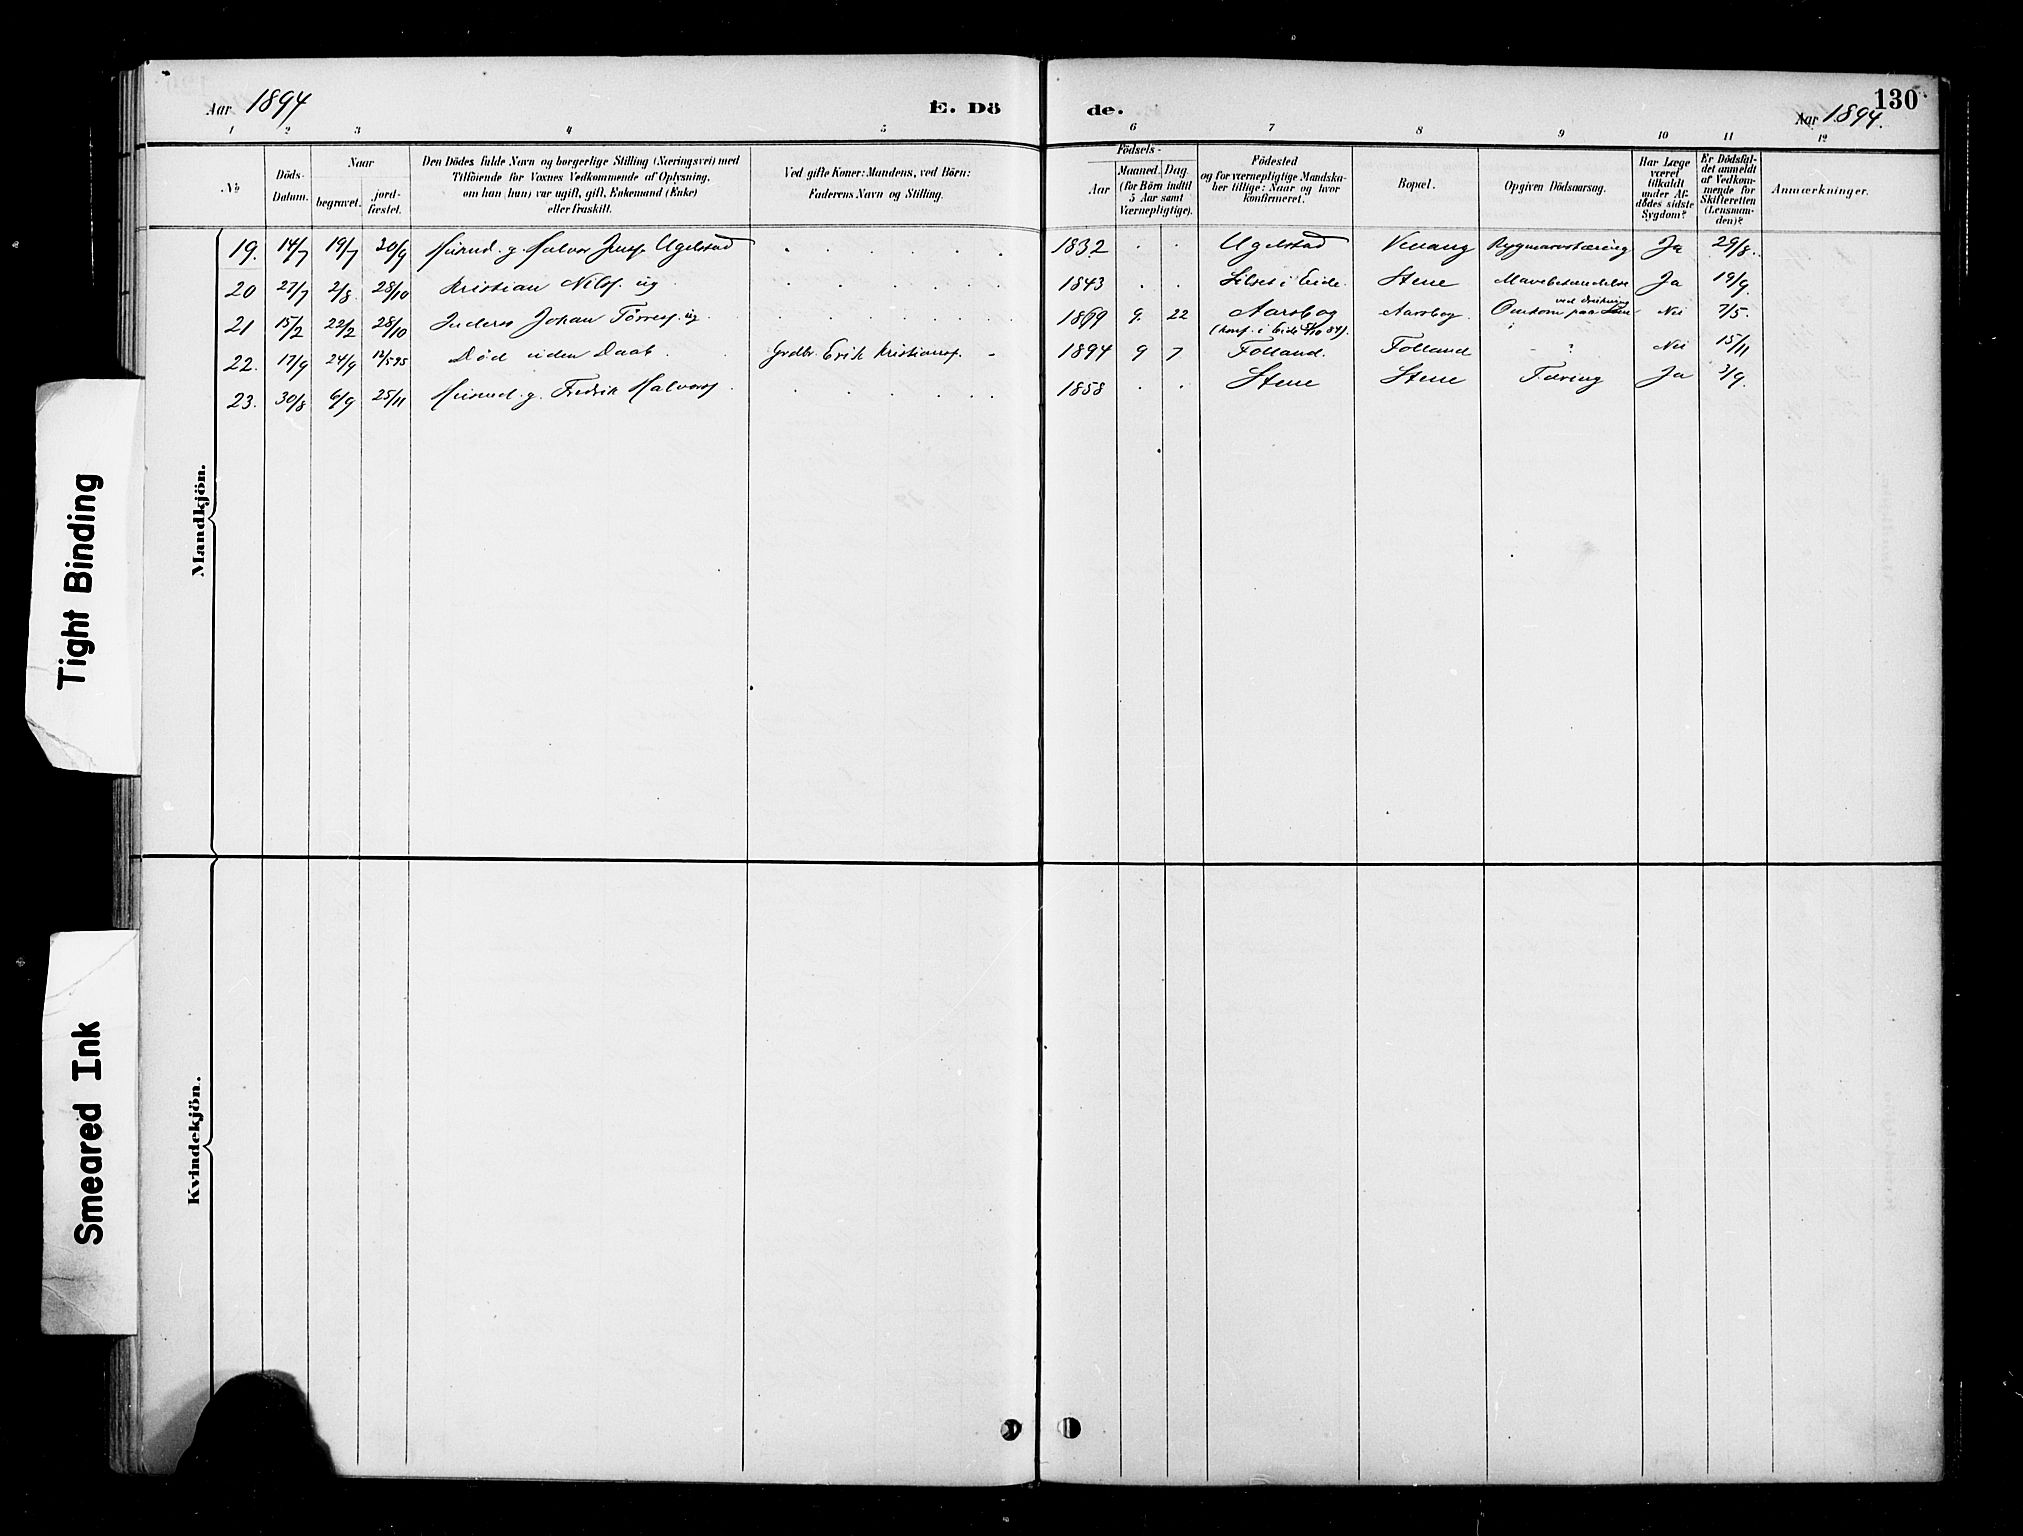 Aar 1894
E. Dö
de.
130
Aar 1894.
1 2 3 4 5 6 7 8 9 10 11 12
No
Döds-
Datum.
Naar
begravet.
jord-
fæstet.
Den Dödes fulde Navn og borgerlige Stilling (Næringsvei) med
Tilföiende for Voxnes Vedkommende af Oplysning,
om han (hun) var ugift, gift, Enkemand (Enke)
eller fraskilt.
Ved gifte Koner: Mandens, ved Börn:
Faderens Navn og Stilling.
Födsels-
Aar
Maaned.
Dag.
(for Börn indtil
5 Aar samt
Værnepligtige).
Födested
og for værnepligtige Mandska-
ber tillige: Naar og hvor
konfirmeret.
Bopæl.
Opgiven Dödsaarsag.
Har Læge
været
tilkaldt
under Af-
dödes sidste
Sygdom?
Er Dödsfal-
det anmeldt
af Vedkom-
mende for
Skifteretten
(Lensman-
den)?
Anmærkninger.
Mandkjön.
19. 14/7 19/7 30/9 g. Halvor Jensp Ugelstad 1832 Ugelstad Rygmarvstæring Ja 29/8.
20 27/7 2/8 28/10 Kristian Nilsp. ug. 1843 Silset i Eide. Stene Mavebetændelse Ja 19/9.
21 15/2 22/2 28/10 Johan Tørresp. ug 1869 9. 22 Aarsbog Aarsbog. Omkom paa Nei 7/5.
(konf. i Eide
22. 17/9 24/9 12/5 95 Død uden Daab. Grdbr. Erik Kristiansp. 1894 9 7 Folland. Folland - ? Nei 15/11
23. 30/8 6/9 25/11 g. Fredrik Halvorsp. 1858 Stene Stene Tæring Ja 3/9.
Kvindekjön.
Tight Binding
Smeared Ink